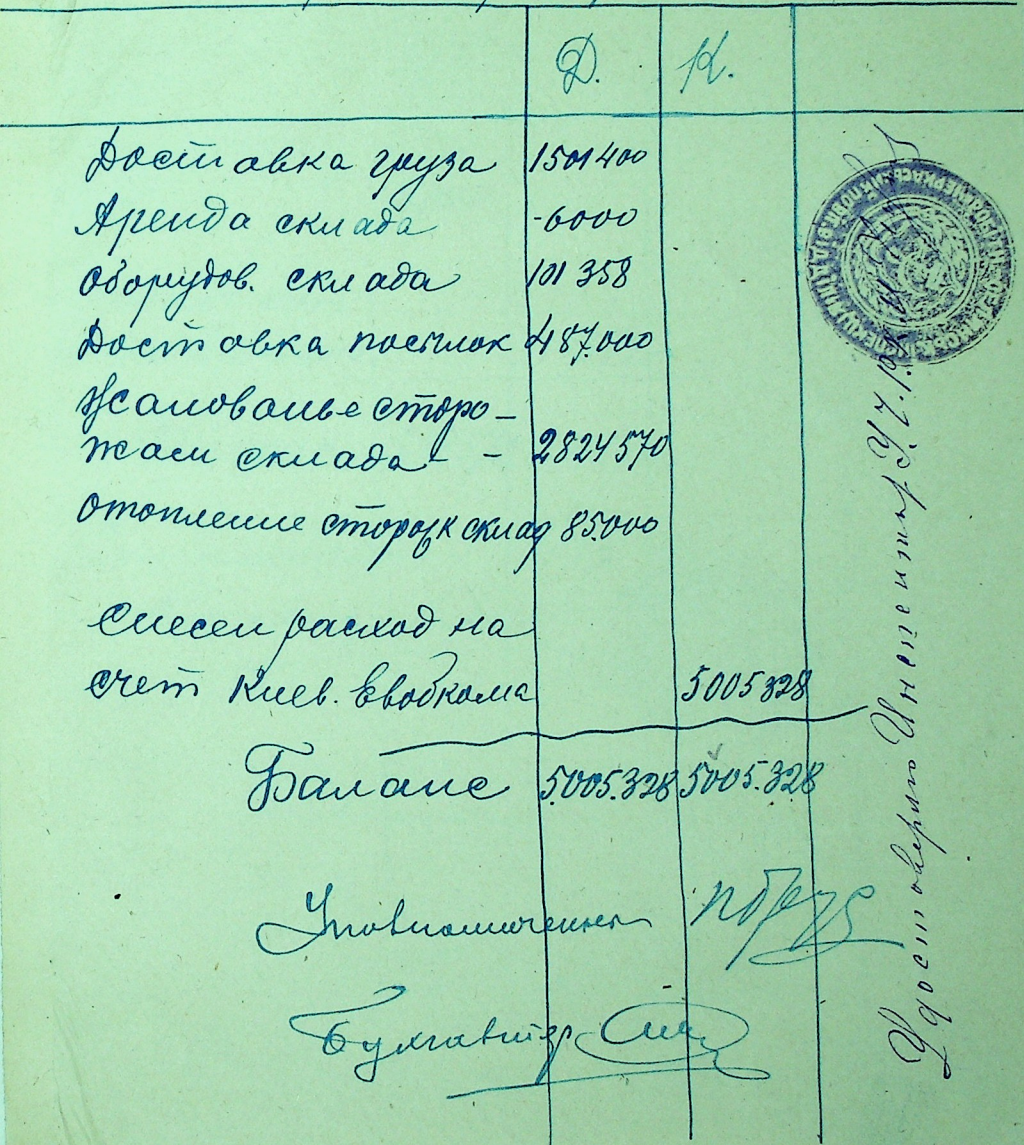 Д. К.
Доставка груза 1501400
Аренда склада -6000
Оборудов. склада 101358
Доставка посылок 487.000
Жалованье сторо-
жам склада - - 2824570
Отопление сторож склад 85.000
Снесен расход на
счет Киев. Евобкома 5005328
Баланс 5.005.328 5005.328
Уповномоченный
Бухгалтер
Удостоверяю Инспектор